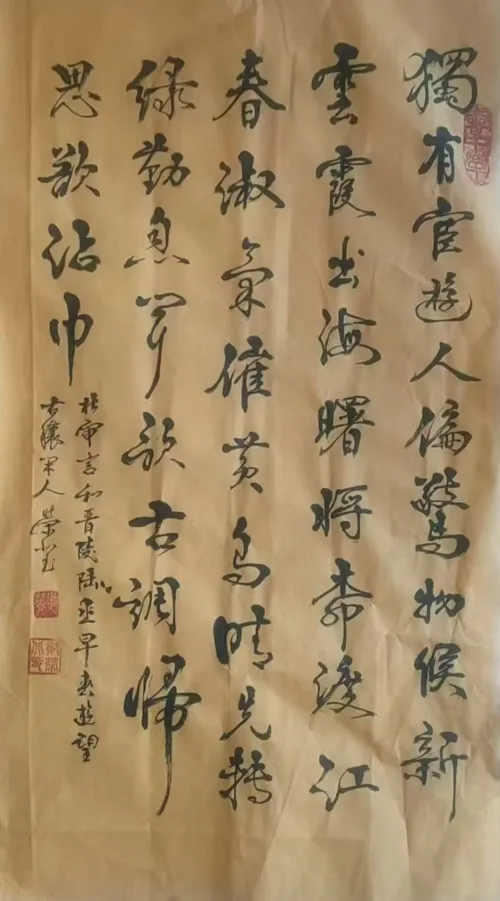 獨有宦遊人偏驚物候新
雲霞出海曙渡江
春淑氣催黄鳥晴光轉
綠忽聞歌古調歸
思欲沾巾
杜審言和晉陵陸丞早春遊望
古穰人榮